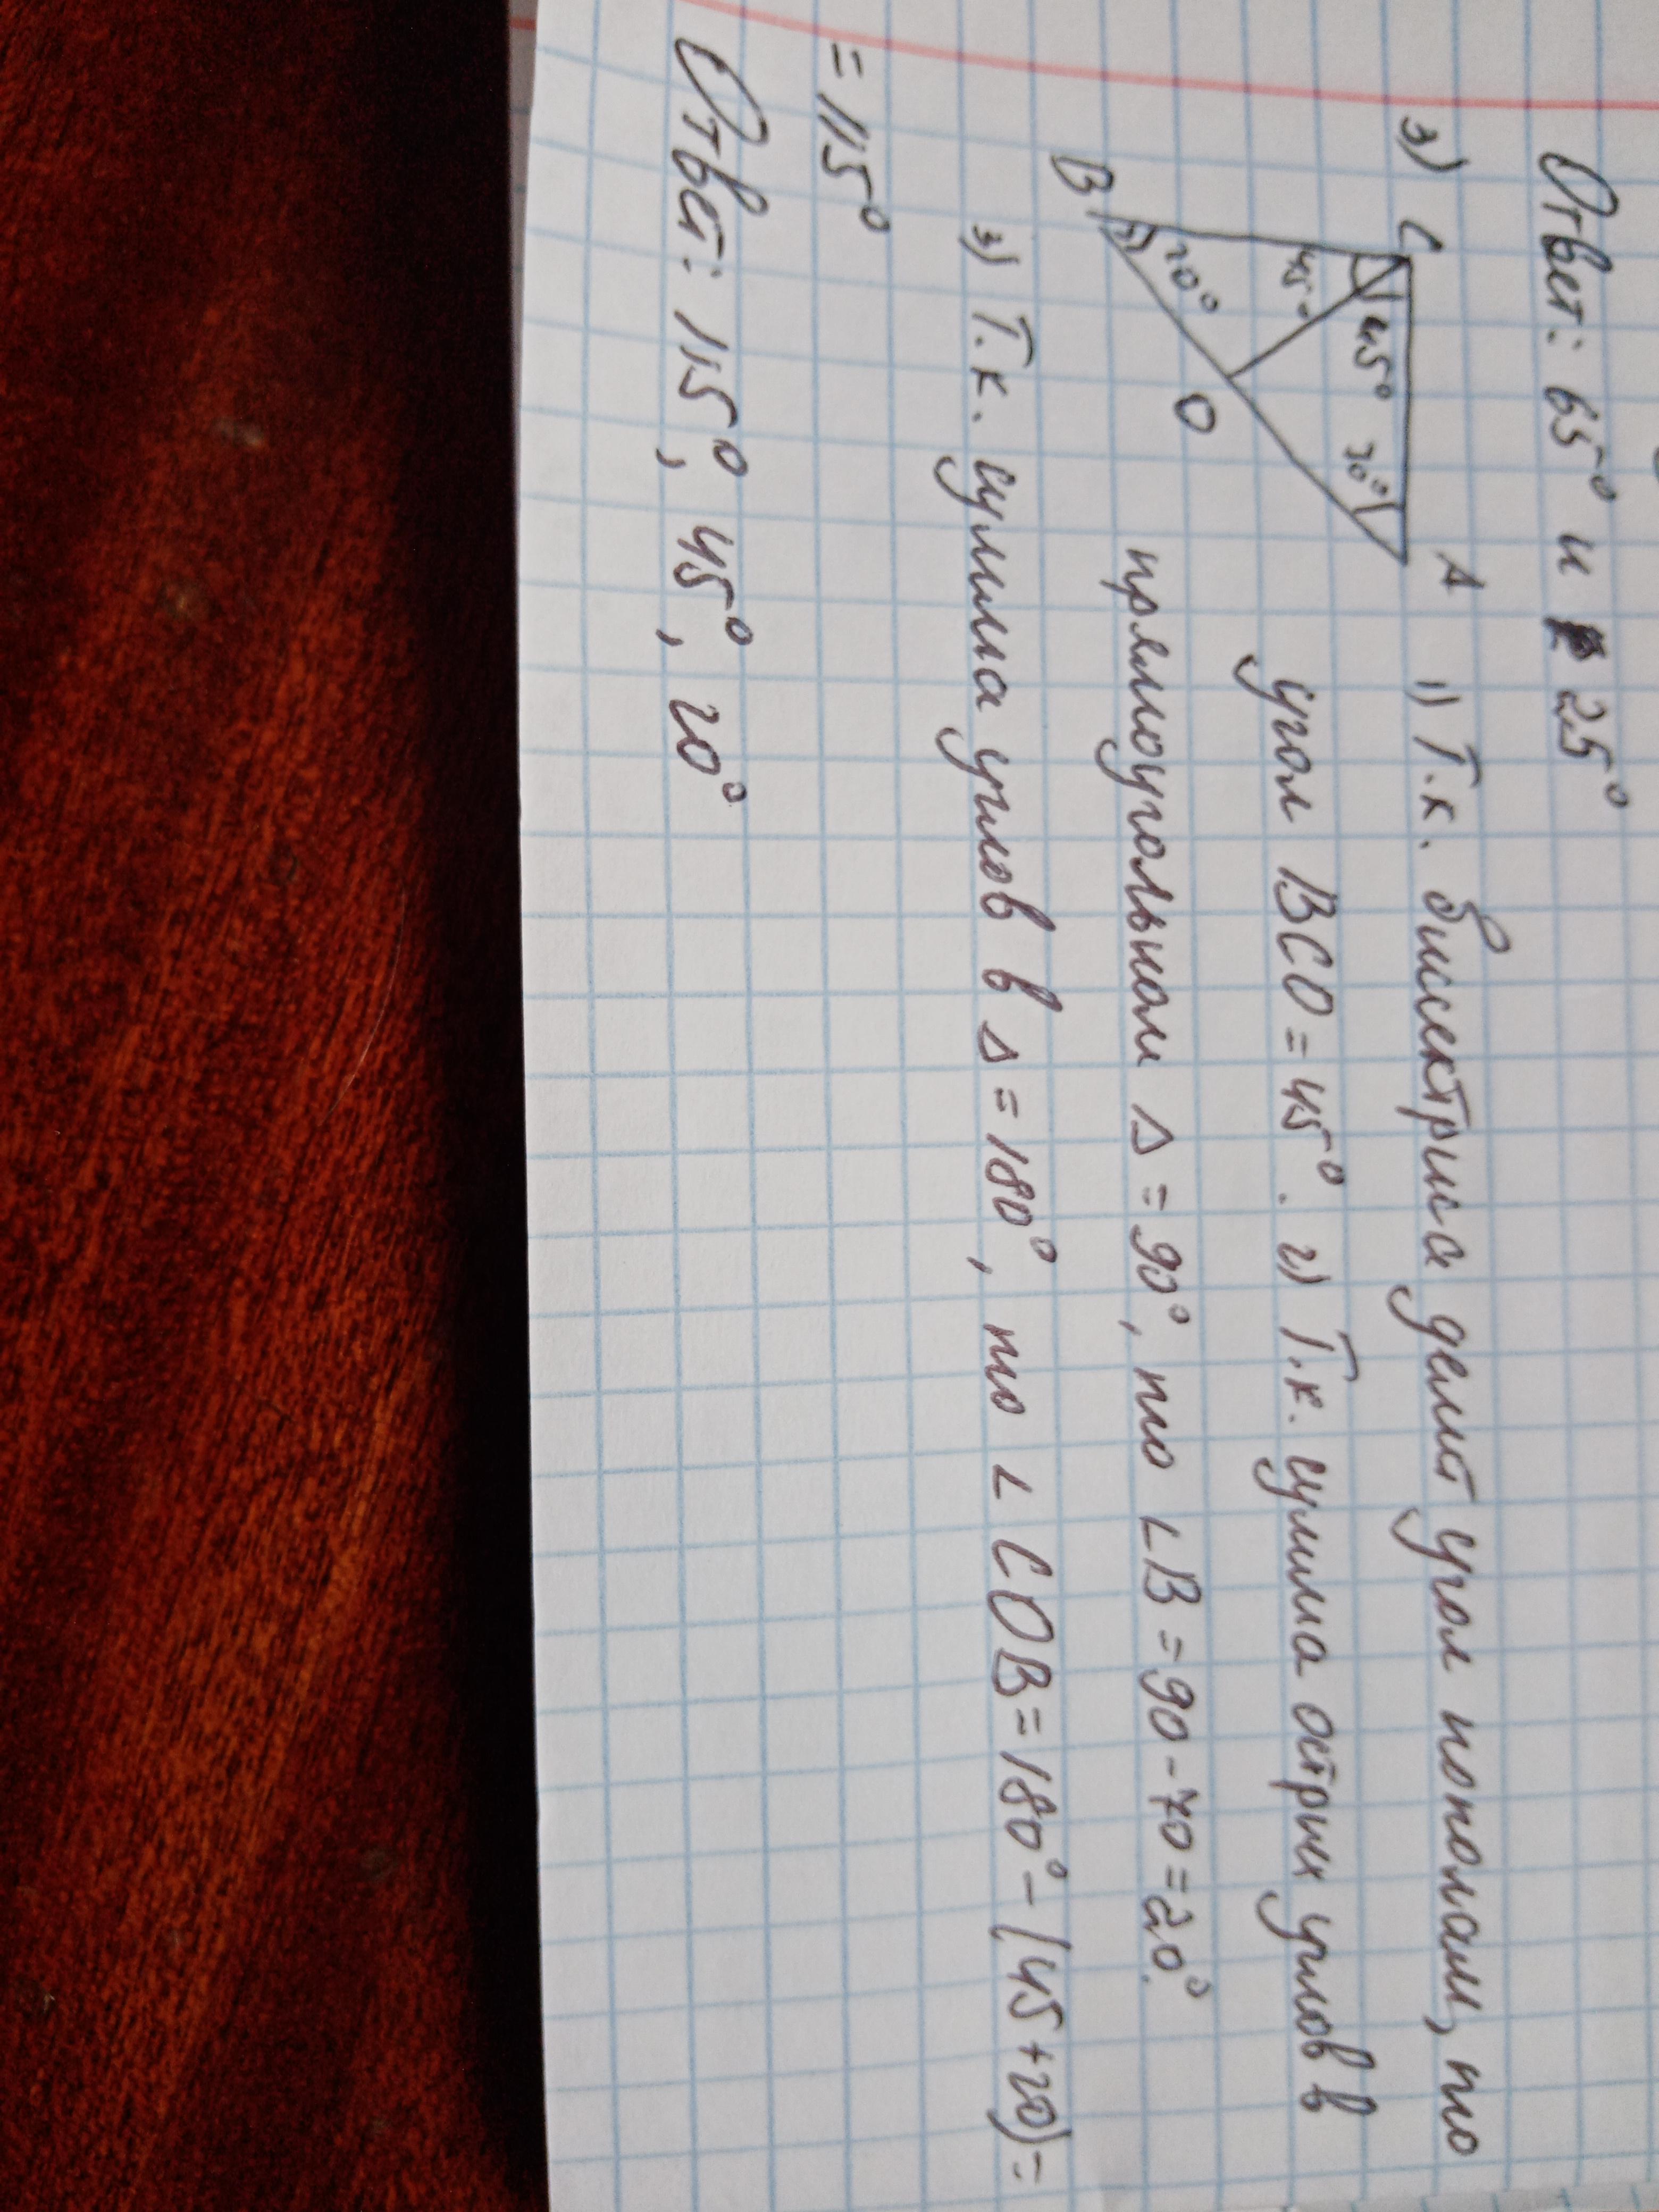 Ответ: 65° и 25°
3) C A B O 45° 45° 70° 20°
1) Т.к. биссектриса делит угол пополам, то
угол BCO = 45°. 2) Т.к. сумма острых углов в
прямоугольном Δ = 90°, то ∠B = 90 - 70 = 20°.
3) Т.к. сумма углов в Δ = 180°, то ∠COB = 180° - (45 + 20) =
= 115°
Ответ: 115°, 45°, 20°